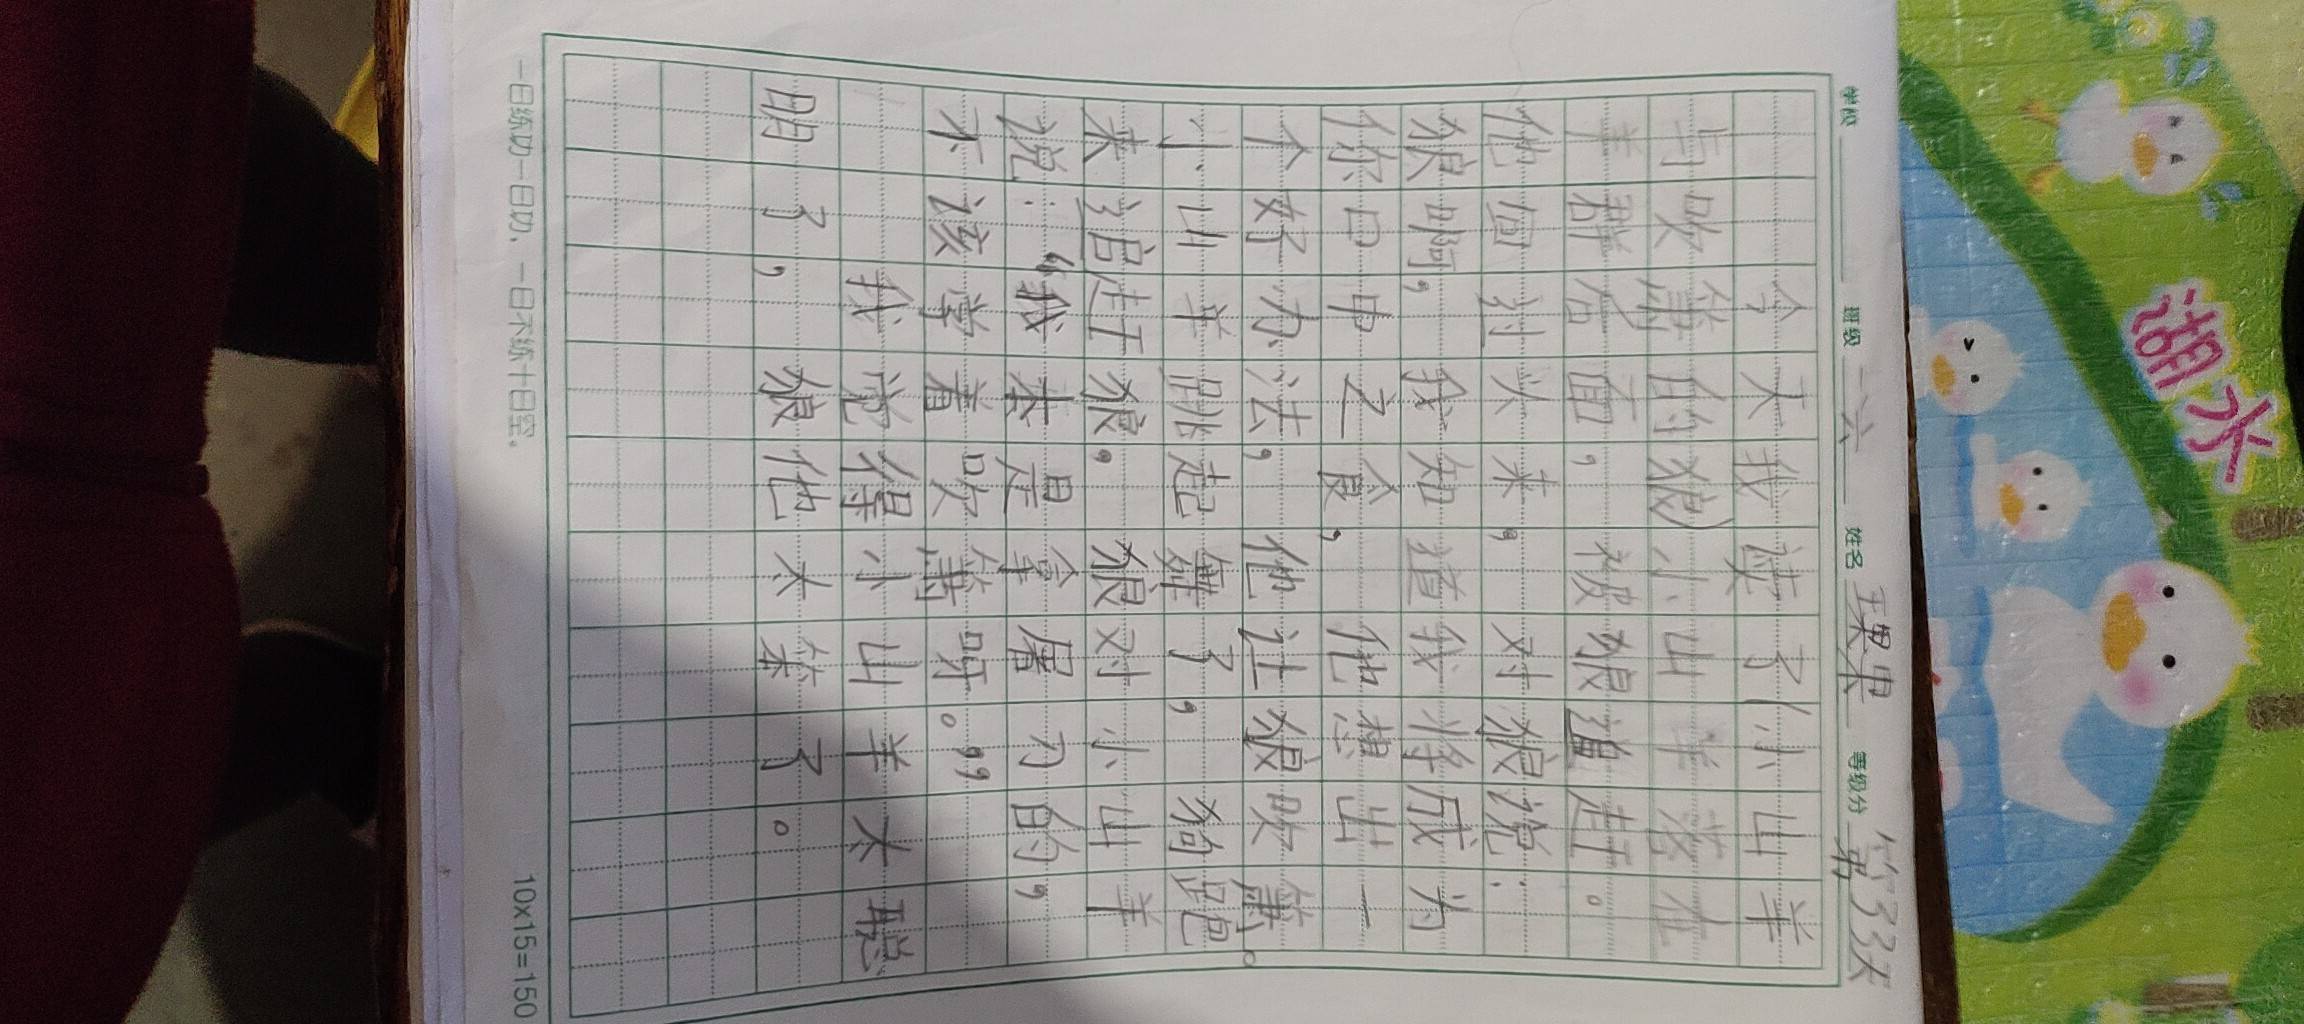 学校 班级 一六 姓名 王果果 等级分 第33天
今天我读了《小山羊
与吹箫的狼》小山羊落在
羊群后面，被狼追赶。
他回过头来，对狼说：
狼啊，我知道我将成为
你口中之食，他想出一
个好办法，他让狼吹箫。
小山羊跳起舞了，狗跑
来追赶狼。狼对小山羊
说：“我本是拿屠刀的，
不该学着吹箫呀。”
我觉得小山羊太聪
明了，狼他太笨了。
一日练功一日功，一日不练十日空。
10×15=150
湖水